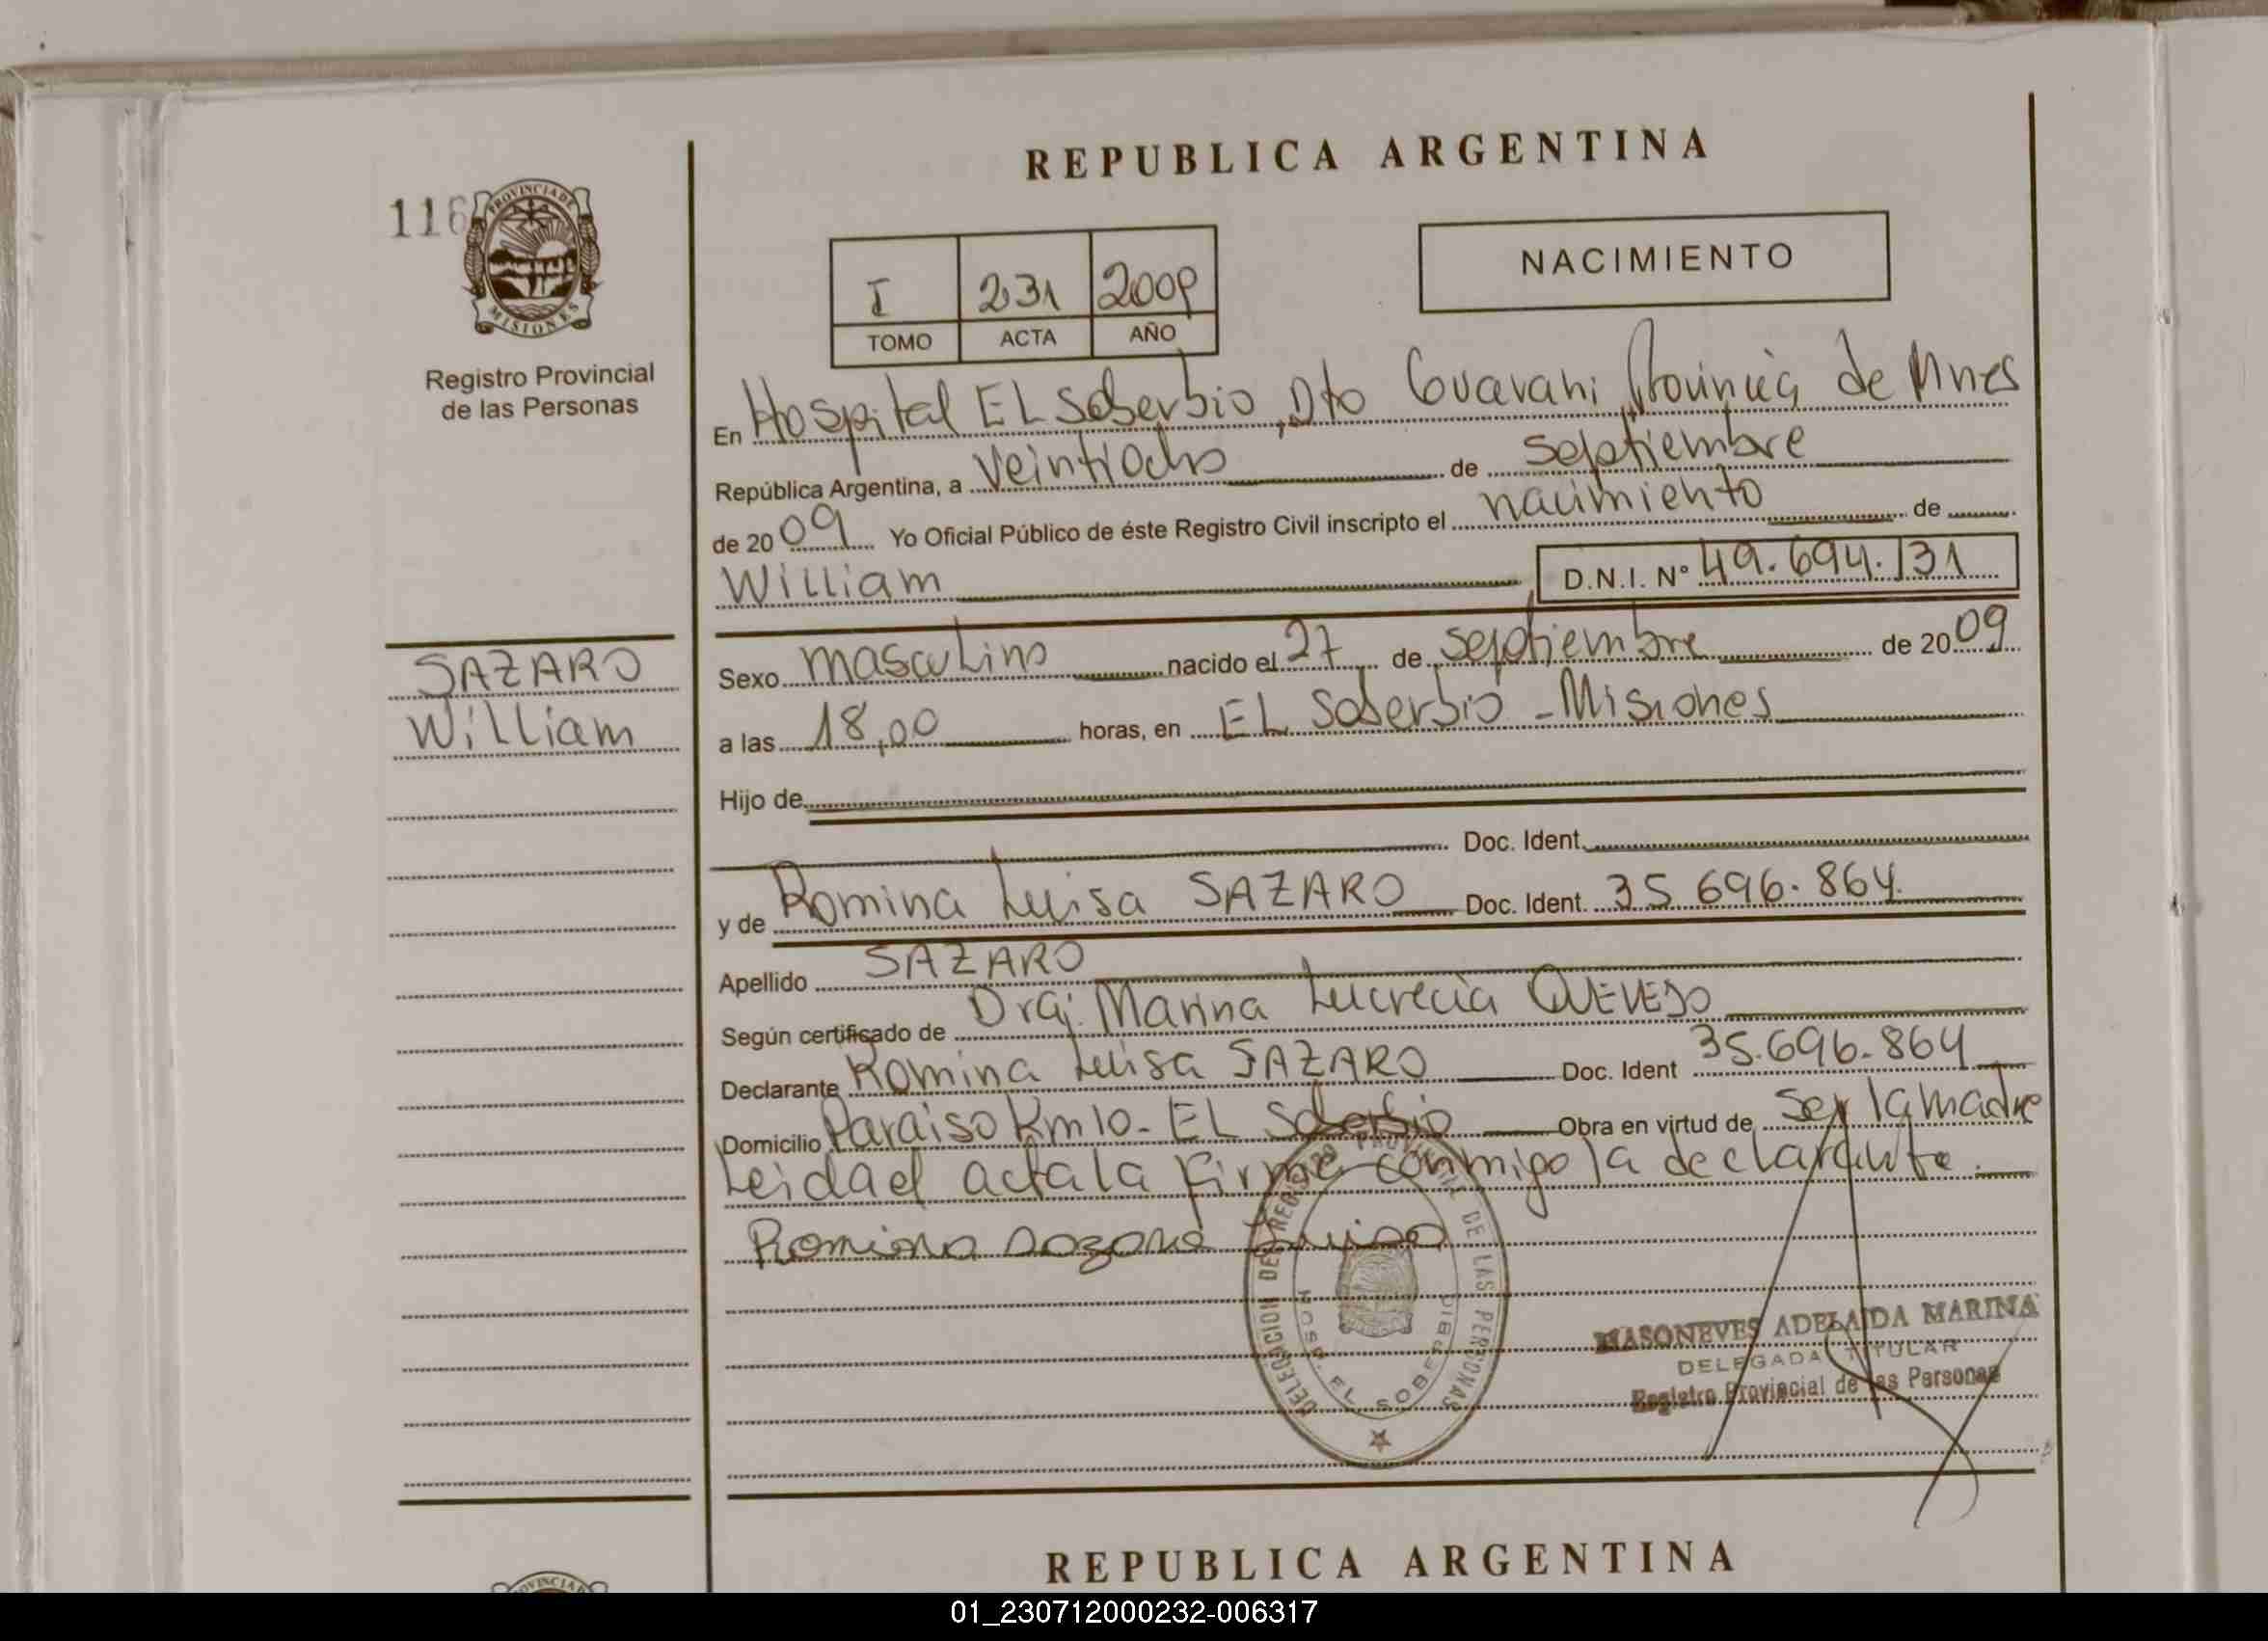 REPUBLICA ARGENTINA
116
PROVINCIA DE
MISIONES
Registro Provincial
de las Personas
I 231 2009
TOMO ACTA AÑO
NACIMIENTO
En Hospital EL Soberbio, Dto Guarani Provincia de Mnes
República Argentina, a Veintiocho de septiembre
de 2009 Yo Oficial Público de éste Registro Civil inscripto el nacimiento de
William D.N.I. Nº 49.694.131
Sexo masculino nacido el 27 de septiembre de 2009
a las 18,00 horas, en EL Soberbio - Misiones
Hijo de
Doc. Ident.
y de Romina Luisa SAZARO Doc. Ident. 35 696.864
Apellido SAZARO
Según certificado de Dra: Marina Lucrecia QUEVEDO
Declarante Romina Luisa SAZARO Doc. Ident 35.696.864
Domicilio Paraiso Km10 - EL Soberbio Obra en virtud de ser la madre
Leida el acta la firma conmigo la declarante.
SAZARO
William
DELEGACION DEL REGISTRO PROVINCIAL DE LAS PERSONAS
HOSP. EL SOBERBIO
MASONEVES ADELAIDA MARINA
DELEGADA TITULAR
Registro Provincial de las Personas
REPUBLICA ARGENTINA
PROVINCIA
01_230712000232-006317